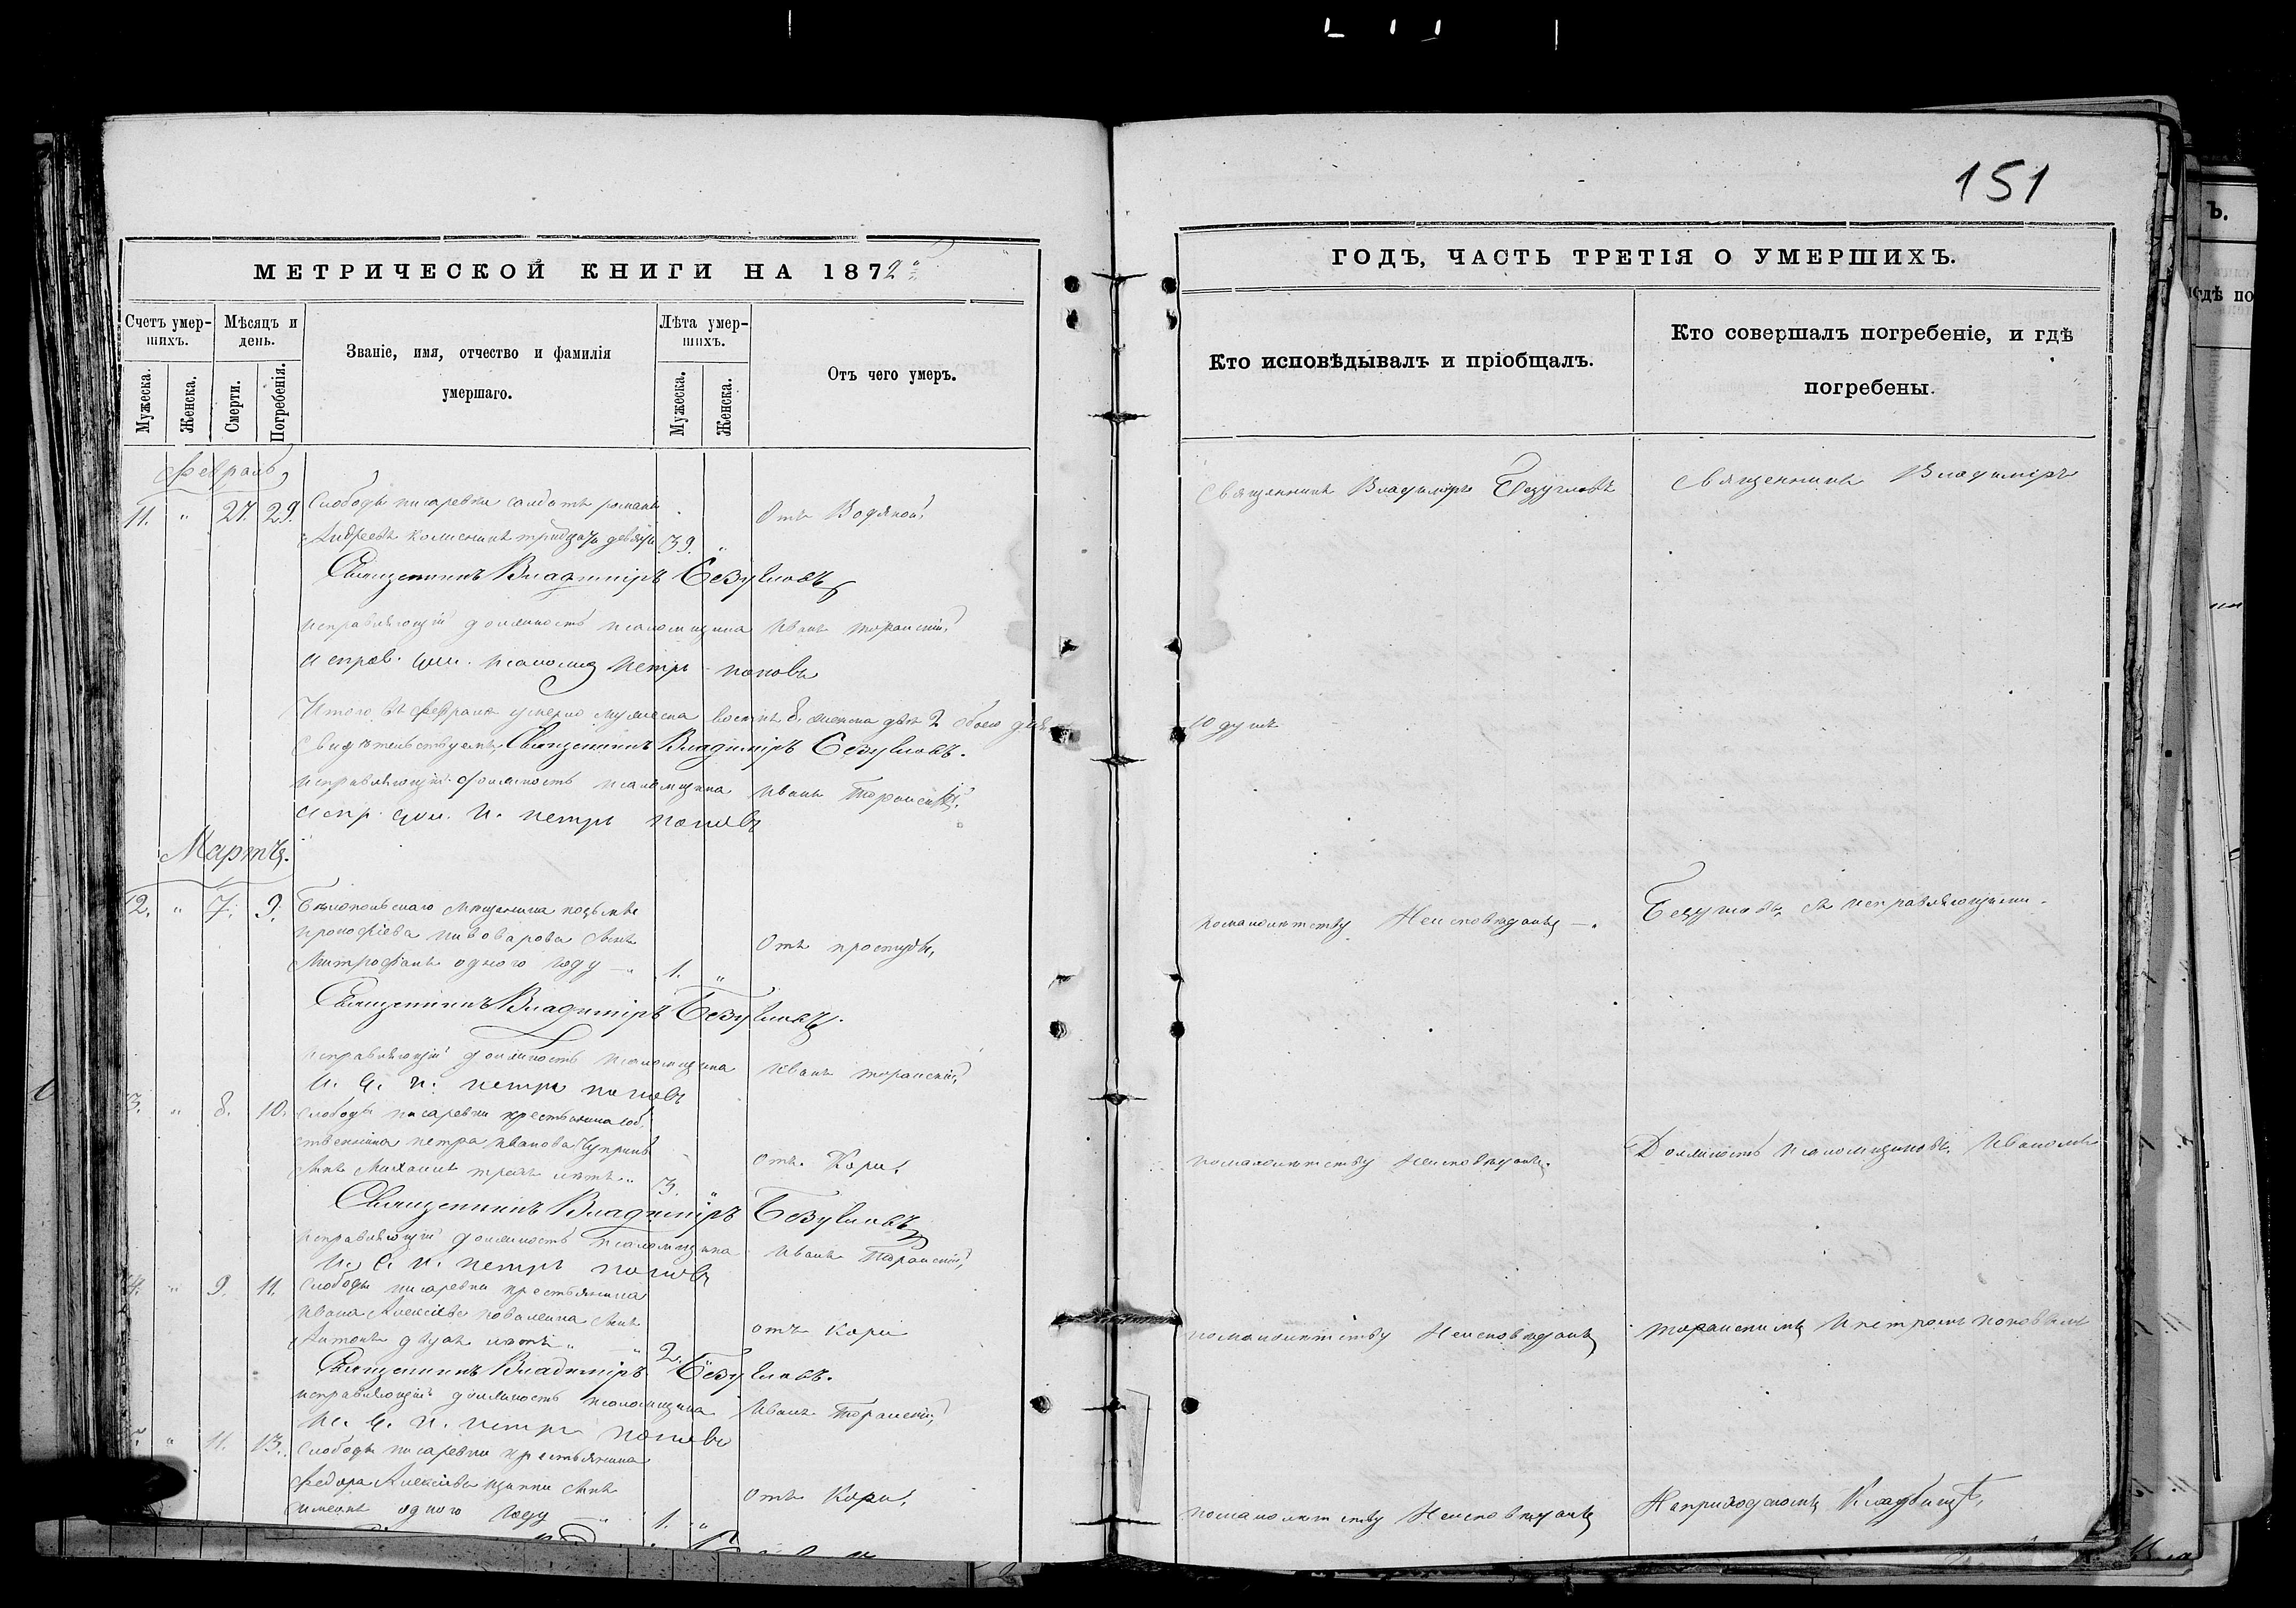 151
МЕТРИЧЕСКОЙ КНИГИ НА 1872
Счетъ умер-
шихъ.
Мѣсяцъ и
день.
Званіе, имя, отчество и фамилія
умершаго.
Лѣта умер-
шихъ.
Отъ чего умеръ.
Мужеска.
Женска.
Смерти.
Погребенія.
Мужеска.
Женска.
Февраль
11. " 27. 29. Слободы писаревки солдатъ романъ
Андреевъ тридцати девяти 39. " Отъ Водяной
Священникъ Владимиръ Безугловъ
исправляющій должность псаломщика Иванъ
Петръ поповъ
Итого въ февралѣ умерло мужеска восемь 8. женска двѣ 2 обоего 10 душъ
Свидѣтельствуемъ Священникъ Владиміръ Безугловъ.
исправляющій должность псаломщика Иванъ
испр. п. петръ поповъ
Мартъ.
12. " 7. 9. мѣщанина
пивоварова сынъ
Митрофанъ одного году 1. " Отъ простуды
Священникъ Владиміръ Безугловъ.
исправляющій должность псаломщика Иванъ
петръ поповъ
3. " 8. 10. Слободы писаревки крестьянина соб-
ственника петра иванова
сынъ Михаилъ трехъ лѣтъ 3. " Отъ Кори
Священникъ Владиміръ Безугловъ
исправляющій должность псаломщика Иванъ
петръ поповъ
4. " 9. 11. Слободы писаревки крестьянина
ивана Алексіева коваленка сынъ
Антонъ двухъ лѣтъ 2. " отъ Кори
Священникъ Владиміръ Безугловъ.
исправляющій должность псаломщика Иванъ
петръ поповъ
" 11. 13. Слободы писаревки крестьянина
Федора Алексіева сынъ
симеонъ одного году 1. " Отъ Кори
ГОДЪ, ЧАСТЬ ТРЕТІЯ О УМЕРШИХЪ.
Кто исповѣдывалъ и пріобщалъ.
Кто совершалъ погребеніе, и гдѣ
погребены.
Священникъ Владимиръ Безугловъ
Священникъ Владиміръ
помалолѣтству Неисповѣданъ
Безугловъ съ исправляющими
помалолѣтству Неисповѣданъ
Должность псаломщиковъ Иваномъ
помалолѣтству Неисповѣданъ
и петромъ поповымъ
помалолѣтству Неисповѣданъ
На приходскомъ Кладбищѣ